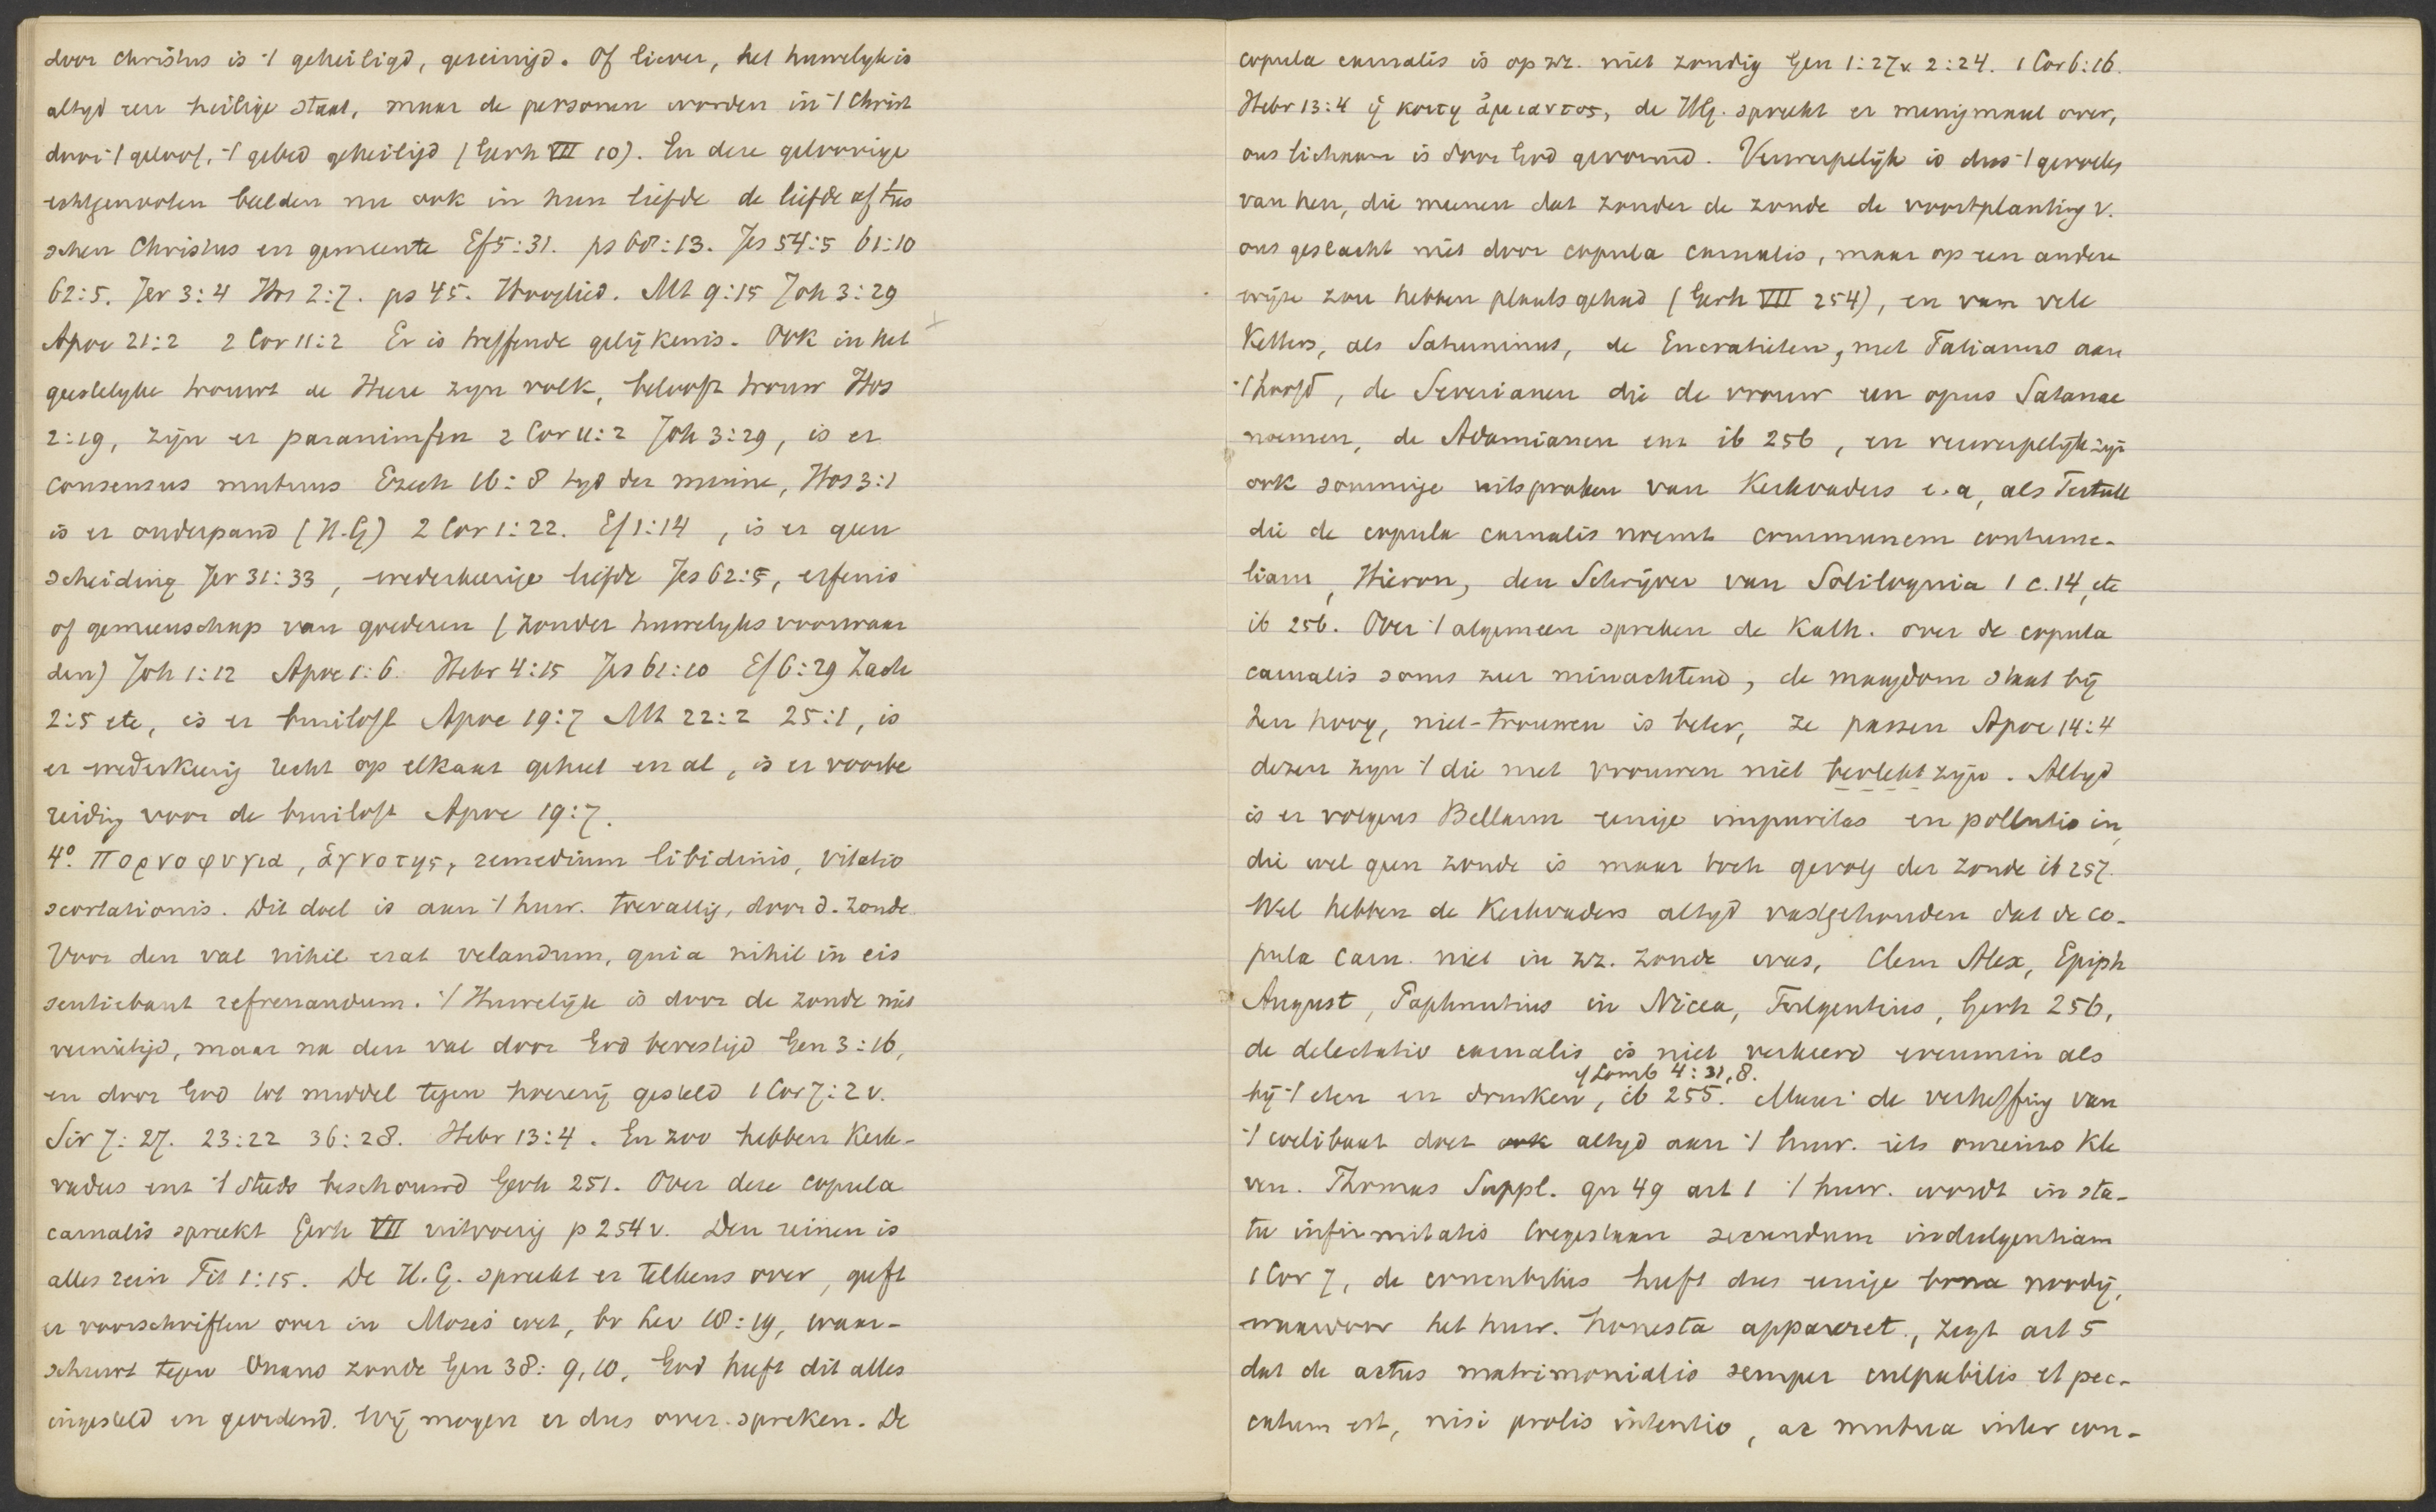 door Christus is 't geheiligd, gereinigd. Of liever, het huwelyk is
altyd een heilige staat, maar de personen worden in 't Christ
door 't geloof, 't gebed geheiligd (Gerh VII 10). En deze geloovige
echtgenooten beelden nu ook in hun liefde de liefde af tus
schen Christus en gemeente Ef 5:31. ps 68:13. Jes 54:5 61:10
62:5. Jer 3:4 Hos 2:7. ps 45. Hooglied. Mt 9:15 Joh 3:29
Apoc 21:2 2 Cor 11:2 Er is treffende gelijkenis. Ook in het
geestelyke trouwt de Heere zyn volk, belooft trouw Hos
2:19, zijn er paranimfen 2 Cor 11:2 Joh 3:29, is er
consensus mutuus Ezech 16:8 tyd der minne, Hos 3:1
is er onderpand (H.G) 2 Cor 1:22. Ef 1:14, is er geen
scheiding Jer 31:33, wederkeerige liefde Jes 62:5, erfenis
of gemeenschap van goederen (zonder huwelyks voorwaar
den) Joh 1:12 Apoc 1:6. Hebr 4:15 Jes 61:10 Ef 6:29 Zach
2:5 etc, is er bruiloft Apoc 19:7 Mt 22:2 25:1, is
er wederkeerig recht op elkaar geheel en al, is er voorbe
reiding voor de bruiloft Apoc 19:7.
4° πορνοφυγια, ἁγνοτης, remedium libidinis, vitatio
scortationis. Dit doel is aan 't huw. toevallig, door d. zonde
Voor den val nihil erat velandum, quia nihil in eis
sentiebant refrenandum. 't Huwelijk is door de zonde niet
vernietigd, maar na den val door God bevestigd Gen 3:16,
en door God tot middel tegen hoererij gesteld 1 Cor 7:2 v.
Sir 7:27. 23:22 36:28. Hebr 13:4. En zoo hebben Kerk-
vaders enz 't steeds beschouwd Gerh 251. Over deze copula
carnalis spreekt Gerh VII uitvoerig p 254 v. Den reinen is
alles rein Tit 1:15. De H.G. spreekt er telkens over, geeft
er voorschriften over in Mozes wet, bv Lev 18:19, waar-
schuwt tegen Onans zonde Gen 38:9,10, God heeft dit alles
ingesteld en geordend. Wij mogen er dus over spreken. De
copula carnalis is op zz. niet zondig Gen 1:27 v 2:24. 1 Cor 6:16.
Hebr 13:4 ἡ κοιτη ἀμιαντος, de H.G. spreekt er menigmaal over,
ons lichaam is door God gevormd. Verwerpelijk is dus 't gevoelen
van hen, die meenen dat zonder de zonde de voortplanting v.
ons geslacht niet door copula carnalis, maar op een andere
wijze zou hebben plaats gehad (Gerh VII 254), en van vele
Ketters, als Saturninus, de Encratieten, met Tatianus aan
't hoofd, de Severianen die de vrouw een opus Satanae
noemen, de Adamianen enz ib 256, en verwerpelijk zijn
ook sommige uitspraken van Kerkvaders e.a, als Tertull
die de copula carnalis noemt communem contume-
liam, Hieron, den Schrijver van Soliloquia 1 c. 14, etc
ib 256. Over 't algemeen spreken de Kath. over de copula
carnalis soms zeer minachtend, de maagdom staat bij
hen hoog, niet-trouwen is beter, ze passen Apoc 14:4
dezen zyn 't die met vrouwen niet bevlekt zyn. Altyd
is er volgens Bellarm eenige impuritas en pollutio in,
die wel geen zonde is maar toch gevolg der zonde ib 257.
Wel hebben de Kerkvaders altyd vastgehouden dat de co-
pula carn. niet in zz. zonde was, Clem Alex, Epiph
August, Paphnutius in Nicea, Fulgentius, Gerh 256,
de delectatio carnalis is niet verkeerd evenmin als
cf Lomb 4:31,8.
bij 't eten en drinken, ib 255. Maar de verheffing van
't coelibaat doet ook altyd aan 't huw. iets onreins kle
ven. Thomas Suppl. qu 49 art 1 't huw. wordt in sta-
tu infirmitatis toegestaan secundum indulgentiam
1 Cor 7, de concubitus heeft dus eenige bona noodig,
waardoor het huw. honesta appareret, zegt art 5
dat de actus matrimonialis semper culpabilis et pec-
catum est, nisi prolis intentio, ac mutua inter con-